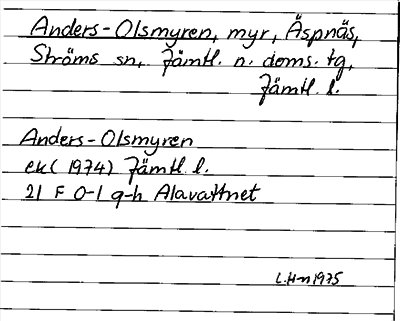 Anders-Olsmyren, myr, Äspnäs,
Ströms sn, Jämtl. n. doms. tg,
Jämtl. l.
Anders-Olsmyren
ek (1974) Jämtl. l.
21 F 0-1 g-h Alavattnet
L.H-n 1975